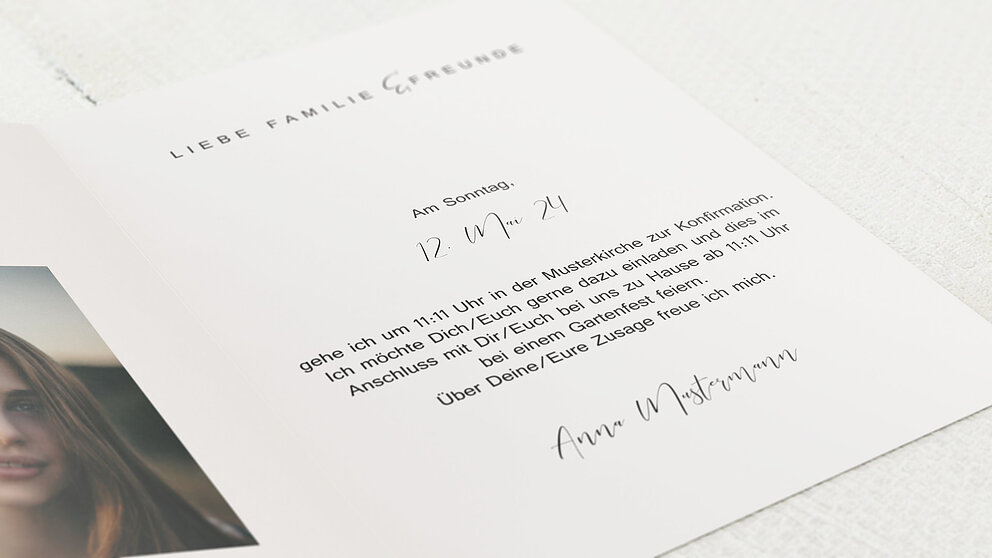 LIEBE FAMILIE & FREUNDE
Am Sonntag,
12. Mai 24
gehe ich um 11:11 Uhr in der Musterkirche zur Konfirmation.
Ich möchte Dich/Euch gerne dazu einladen und dies im
Anschluss mit Dir/Euch bei uns zu Hause ab 11:11 Uhr
bei einem Gartenfest feiern.
Über Deine/Eure Zusage freue ich mich.
Anna Mustermann